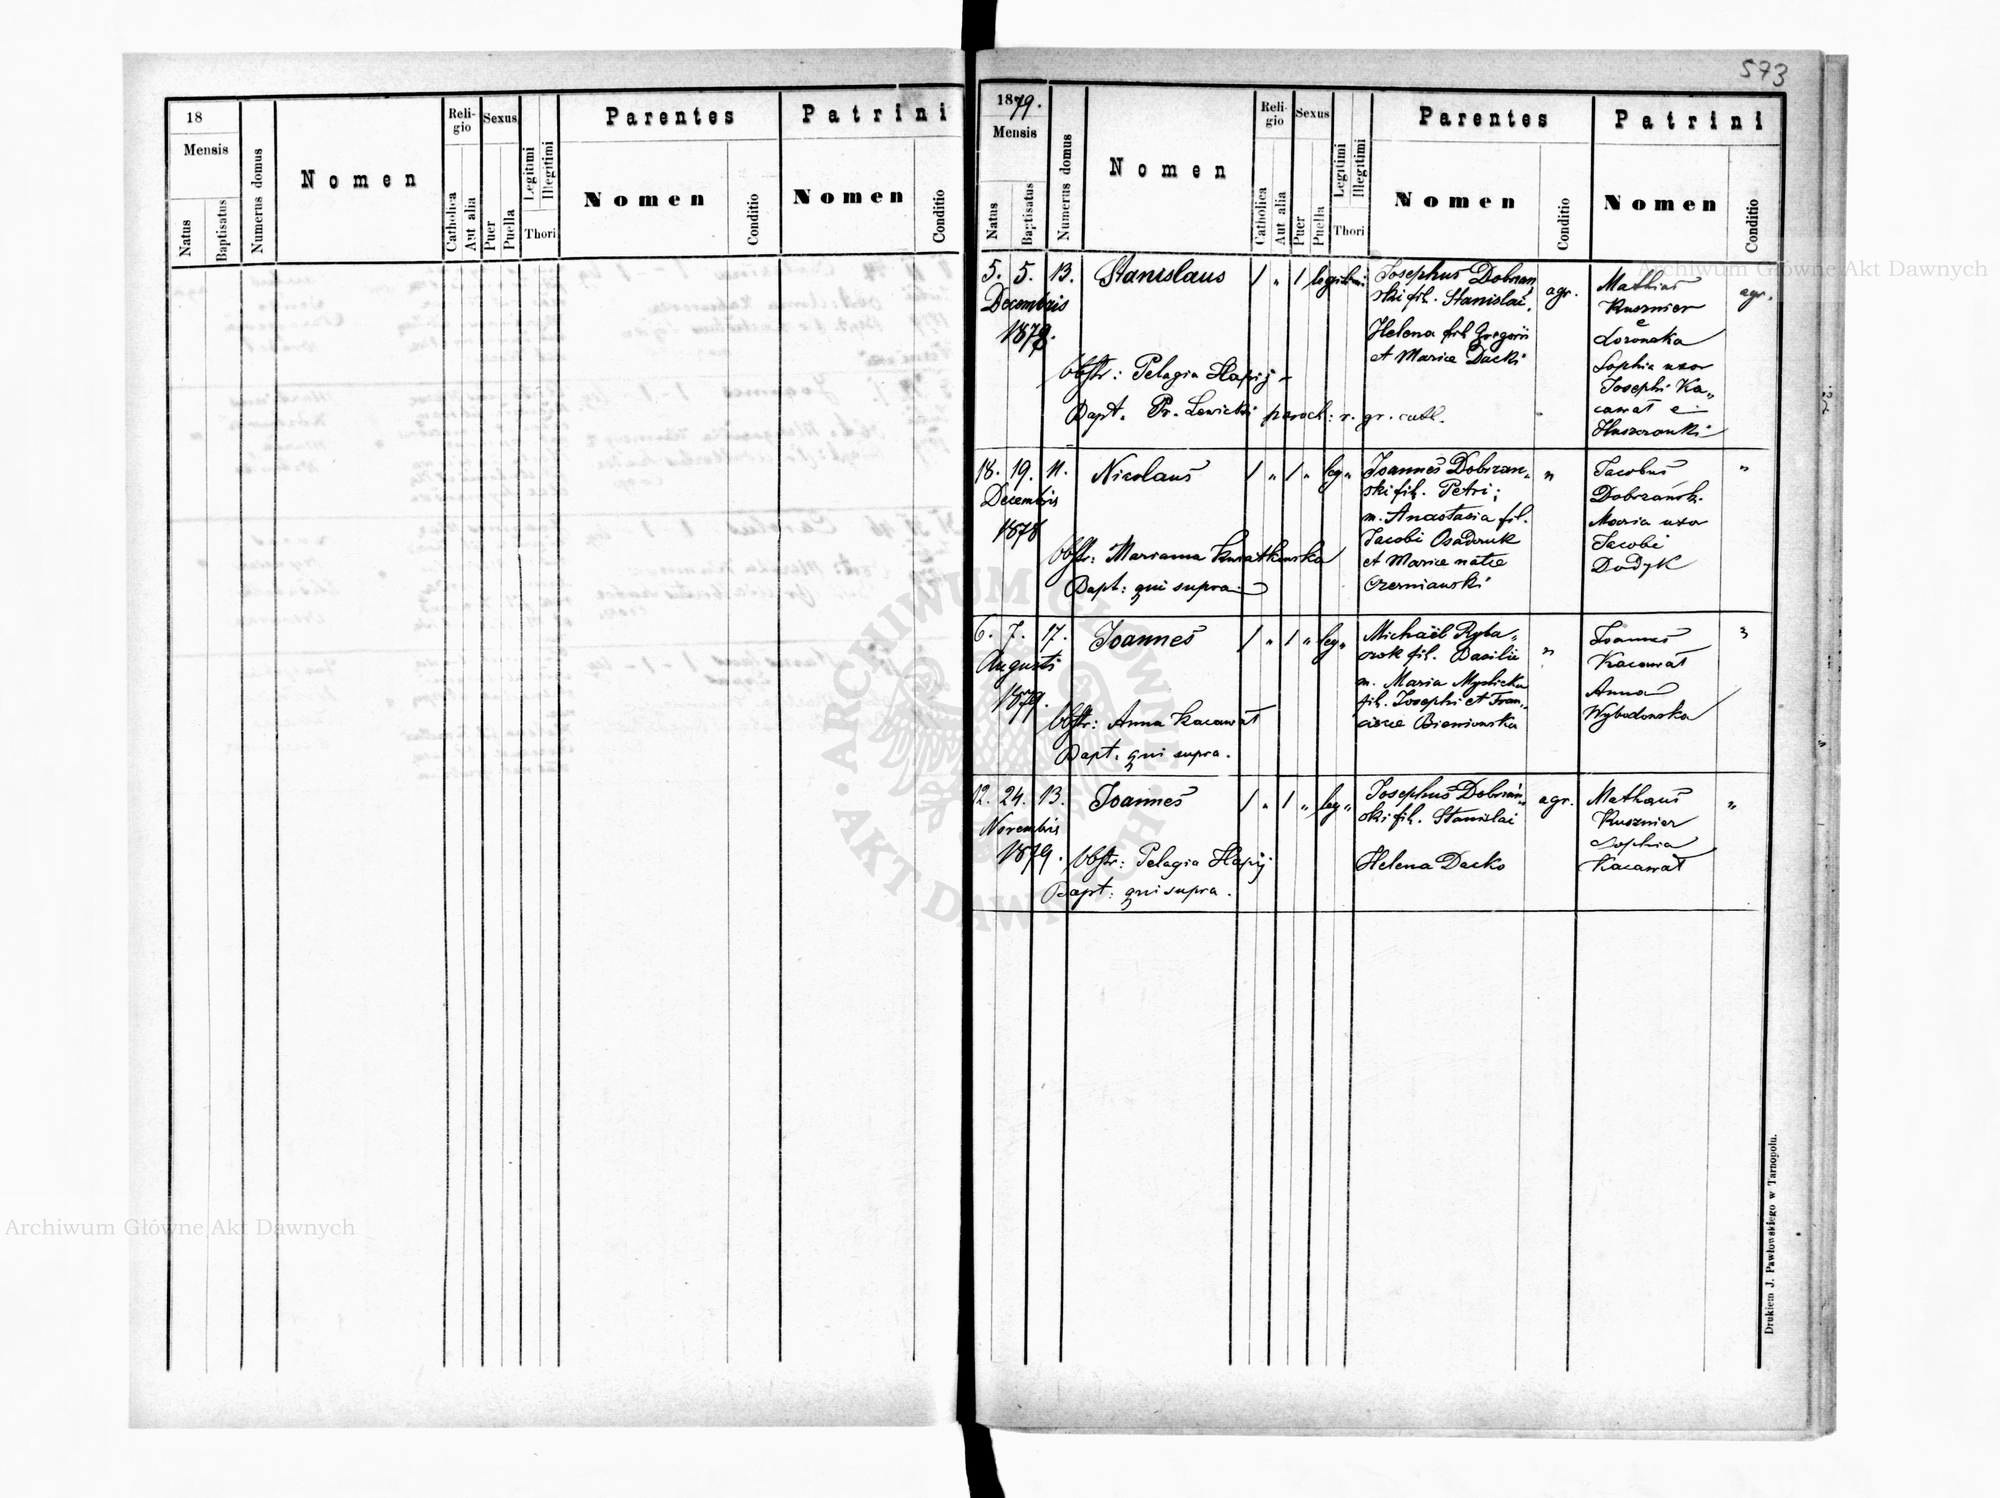 573
18
Mensis
Natus
Baptisatus
Numerus domus
Nomen
Reli-
gio
Catholica
Aut alia
Sexus
Puer
Puella
Legitimi
Illegitimi
Thori
Parentes
Nomen
Conditio
Patrini
Nomen
Conditio
1879.
Mensis
Natus
Baptisatus
Numerus domus
Nomen
Reli-
gio
Catholica
Aut alia
Sexus
Puer
Puella
Legitimi
Illegitimi
Thori
Parentes
Nomen
Conditio
Patrini
Nomen
Conditio
5. 5. 13. Stanislaus 1 " 1 legitimi
Decembris
1878.
Josephus Dobrzań
ski fil. Stanislai,
Helena fil Gregorii
et Mariæ Dacki
agr.
Mathias
Kusznier
e
Sophia uxor
Josephi Ka„
cawał e
agr.
Obstr: Pelagia Hapij
Bapt. Pr. Lewicki paroch: r. gr. cath.
18. 19. 11. Nicolaus 1 " 1 " leg "
Decembris
1878
Joannes Dobrzan„
ski fil. Petri;
m. Anastasia fil.
Jacobi Osadczuk
et Mariæ natæ
Czerniawski
"
Jacobus
Dobrzański
Maria uxor
Jacobi
Dodyk
"
Obstr: Marianna Kwiatkowska
Bapt: qui supra
6. 7. 17. Joannes 1 " 1 " leg "
Augusti
1879.
Michaël Ryba„
czok fil. Basilii
m. Maria Myslicka
fil. Josephi et Fran„
ciscæ Bieniowska
"
Joannes
Kacawał
Anna
Wybodowska
"
Obstr: Anna Kacawał
Bapt. qui supra.
12. 24. 13. Joannes 1 " 1 " leg "
Novembris
1879.
Josephus Dobrzań„
ski fil. Stanislai
Helena Dacko
agr.
Mathæus
Kusznier
Sophia
Kacawał
"
Obstr: Pelagia Hapij
Bapt: qui supra.
Drukiem J. Pawłowskiego w Tarnopolu.
Archiwum Główne Akt Dawnych
Archiwum Główne Akt Dawnych
ARCHIWUM GŁÓWNE
AKT DAWNYCH